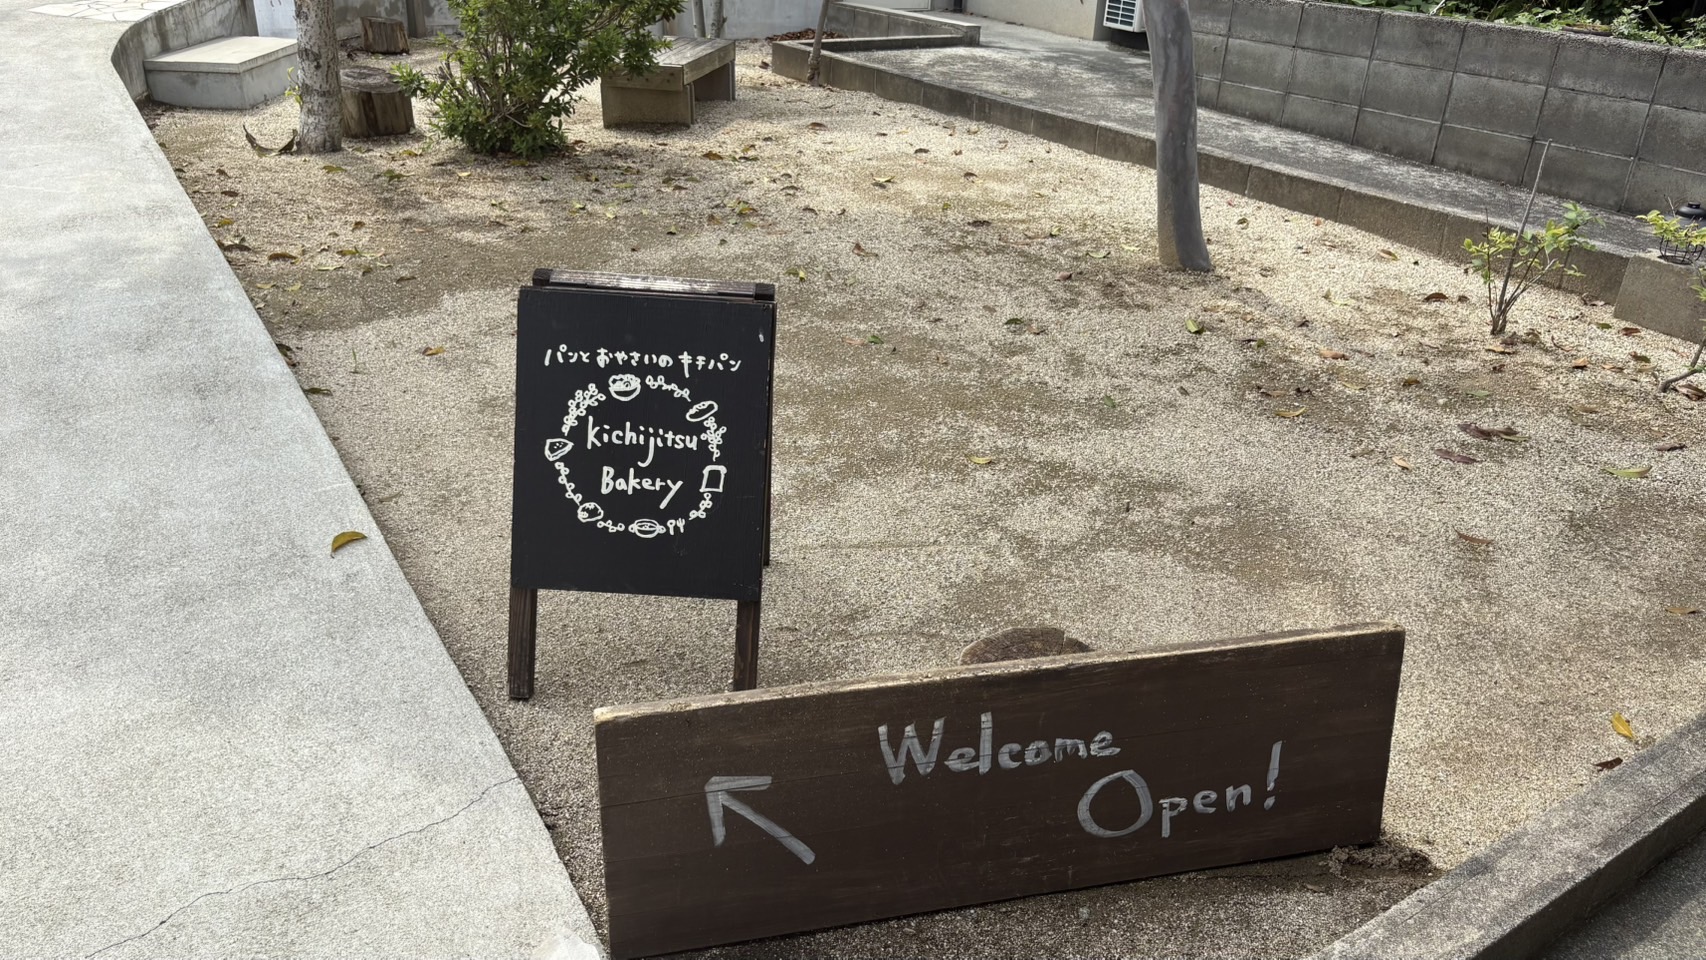 パンとおやさいのキチパン
kichijitsu
Bakery
Welcome
Open!